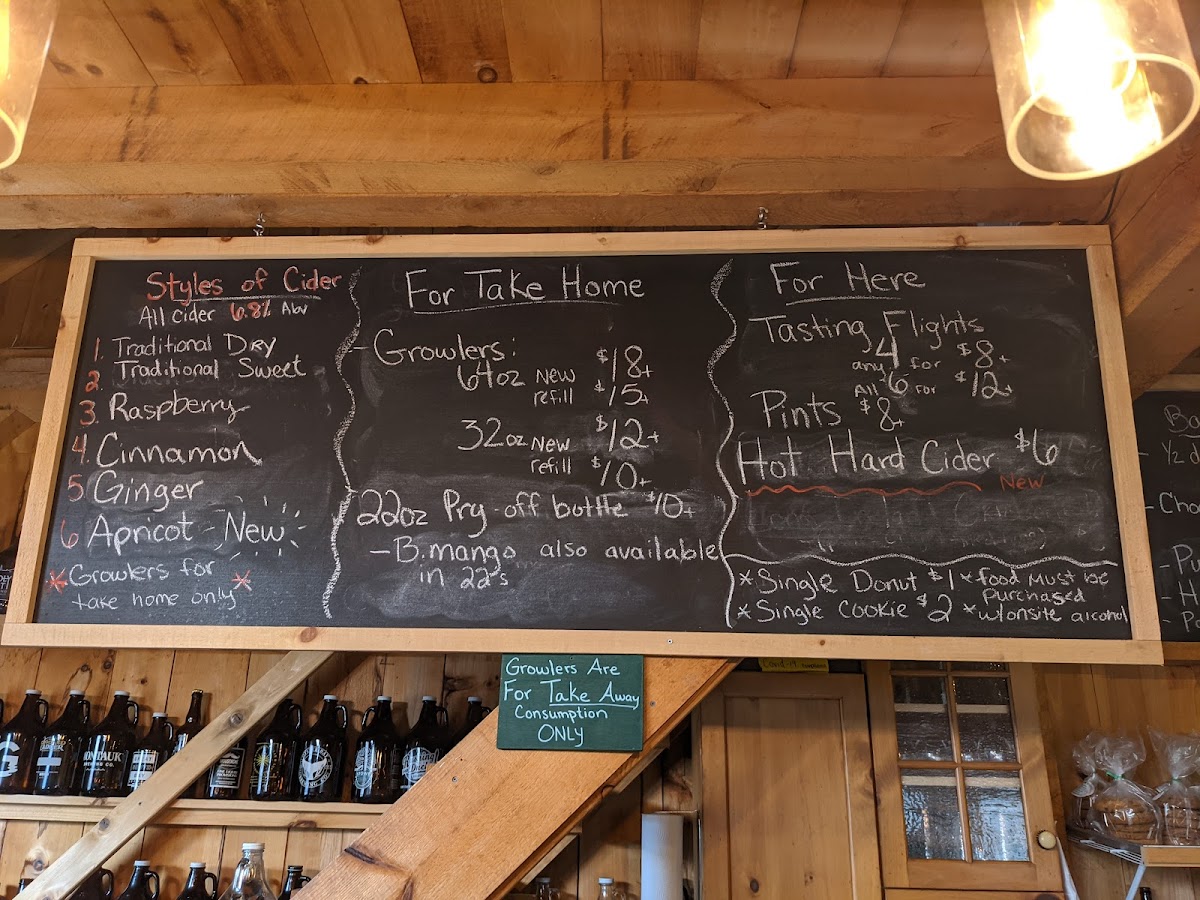 Styles of Cider
All cider 6.8% Abv
1. Traditional DRY
2. Traditional Sweet
3 Raspberry
4 Cinnamon
5 Ginger
6 Apricot - New
* Growlers for *
take home only
For Take Home
- Growlers:
64oz New $18+
refill $15+
32oz New $12+
refill $10+
22oz Pry-off bottle $10+
- B.mango also available
in 22's
For Here
Tasting Flights
any 4 for $8+
All 6 for $12+
Pints $8+
Hot Hard Cider $6
New
* Single Donut $1
* Single cookie $2
* food must be
purchased
* w/onsite alcohol
Growlers Are
For Take Away
Consumption
ONLY